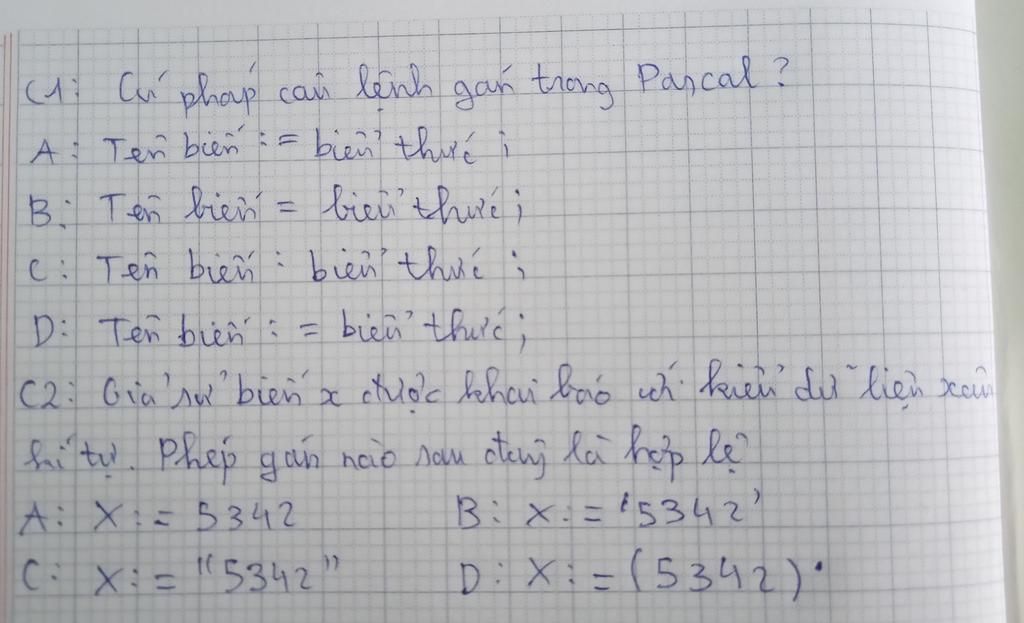 C1: Cú pháp câu lệnh gán trong Pascal?
A: Tên biến := biểu thức;
B: Tên biến = biểu thức;
C: Tên biến : biểu thức;
D: Tên biến : = biểu thức;
C2: Giả sử biến x được khai báo với kiểu dữ liệu xâu
kí tự. Phép gán nào sau đây là hợp lệ
A: X := 5342 B: X := '5342'
C: X := "5342" D: X := (5342).